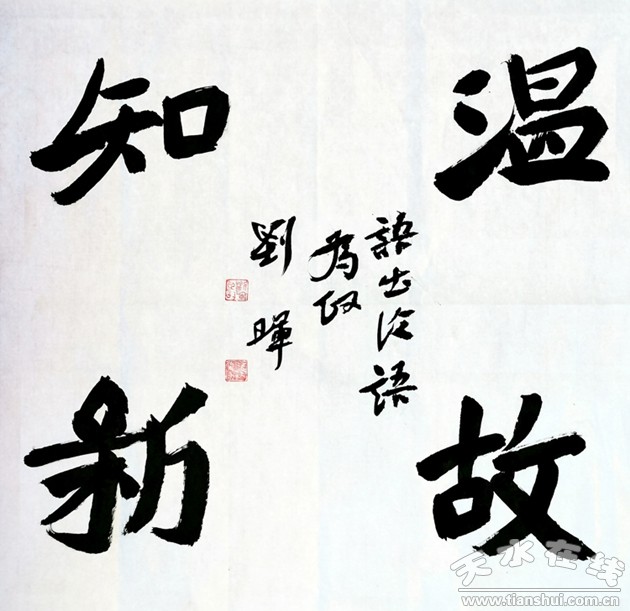 温故
知新
語出论語
為政
劉暉
天水在线
www.tianshui.com.cn